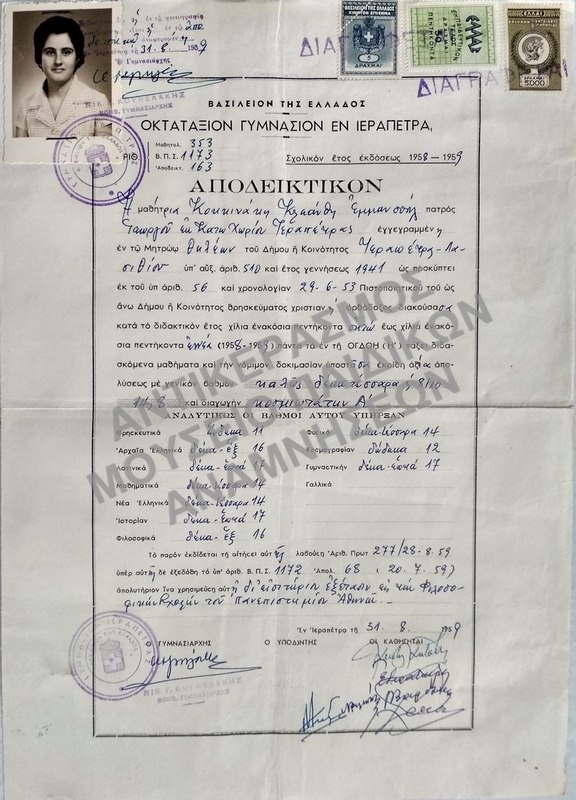 31.8. 1959
ΒΑΣΙΛΕΙΟΝ ΤΗΣ ΕΛΛΑΔΟΣ
5
ΔΡΑΧΜΑΙ
ΕΛΛΑΣ
ΔΡΑΧΜΑΙ
5000
ΔΙΑΓΡΑΦΕΤΑΙ
ΔΙΑΓΡΑΦΕΤΑΙ
ΒΑΣΙΛΕΙΟΝ ΤΗΣ ΕΛΛΑΔΟΣ
ΟΚΤΑΤΑΞΙΟΝ ΓΥΜΝΑΣΙΟΝ ΕΝ ΙΕΡΑΠΕΤΡΑ,
Μαθητολ. 353
ΑΡΙΘ Β.Π.Σ. 1173
Ἀποδεικτ. 163
Σχολικὸν ἔτος ἐκδόσεως 1958-1959
ΑΠΟΔΕΙΚΤΙΚΟΝ
Ἡ μαθήτρια Κοκκινάκη Ἐμμανουὴλ πατρὸς
Γεωργίου ἐκ Κάτω Χωρίου Ἱεραπέτρας ἐγγεγραμμένη
ἐν τῷ Μητρώῳ Θηλέων τοῦ Δήμου ἢ Κοινότητος Ἱεραπέτρα-Λα-
σιθίου ὑπ' αὐξ. ἀριθ. 510 καὶ ἔτος γεννήσεως 1941 ὡς προκύπτει
ἐκ τοῦ ὑπ' ἀριθ. 56 καὶ χρονολογίαν 29-6-53 Πιστοποιητικοῦ τοῦ ὡς
ἄνω Δήμου ἢ Κοινότητος θρησκεύματος χριστιαν. ὀρθόδοξος διακούσασα
κατὰ τὸ διδακτικὸν ἔτος χίλια ἐνακόσια πεντήκοντα ὀκτὼ ἕως χίλια ἐνακό-
σια πεντήκοντα ἐννέα (1958-1959) πάντα τὰ ἐν τῇ ΟΓΔΟΗ (Η') τάξει διδα-
σκόμενα μαθήματα καὶ τὴν νόμιμον δοκιμασίαν ὑποστᾶσα ἐκρίθη ἀξία ἀπο-
λύσεως μὲ γενικὸν βαθμὸν καλῶς δεκατέσσαρα 8/10
14 8 καὶ διαγωγὴν κοσμιωτάτην Α'
ΑΝΑΛΥΤΙΚΩΣ ΟΙ ΒΑΘΜΟΙ ΑΥΤΟΥ ΥΠΗΡΞΑΝ
Θρησκευτικὰ ἕνδεκα 11 Φυσικὰ δέκα-τέσσαρα 14
Ἀρχαῖα Ἑλληνικὰ δέκα-ἓξ 16 Κοσμογραφίαν δώδεκα 12
Λατινικὰ δέκα-ἑπτὰ 17 Γυμναστικὴν δέκα-ἑπτὰ 17
Μαθηματικὰ δέκα-τέσσαρα 14 Γαλλικὰ
Νέα Ἑλληνικὰ δέκα-τέσσαρα 14
Ἱστορίαν δέκα-ἑπτὰ 17
Φιλοσοφικὰ δέκα-ἓξ 16
Τὸ παρὸν ἐκδίδεται τῇ αἰτήσει αὐτῆς λαβούσῃ Ἀριθ. Πρωτ 277/28-8.59
ὑπὲρ αὐτῆς δὲ ἐξεδόθη τὸ ὑπ' ἀριθ. Β.Π.Σ. 1172 Ἀπολ. 68 (20.7.59)
ἀπολυτήριον Ἵνα χρησιμεύσῃ αὐτῇ δι' εἰσιτήριον ἐξέτασιν εἰς τὴν Φιλοσο-
φικὴν Σχολὴν τοῦ Πανεπιστημίου Ἀθηνῶν.
Ἐν Ἱεραπέτρᾳ τῇ 31. 8. 1959
Ο ΓΥΜΝΑΣΙΑΡΧΗΣ Ο ΥΠΟΔ/ΝΤΗΣ ΟΙ ΚΑΘΗΓΗΤΑΙ
ΑΝΤΙΚΕΡΑΣΜΟΣ
ΜΟΥΣΕΙΟ ΠΑΙΔΙΚΩΝ
ΑΝΑΜΝΗΣΕΩΝ